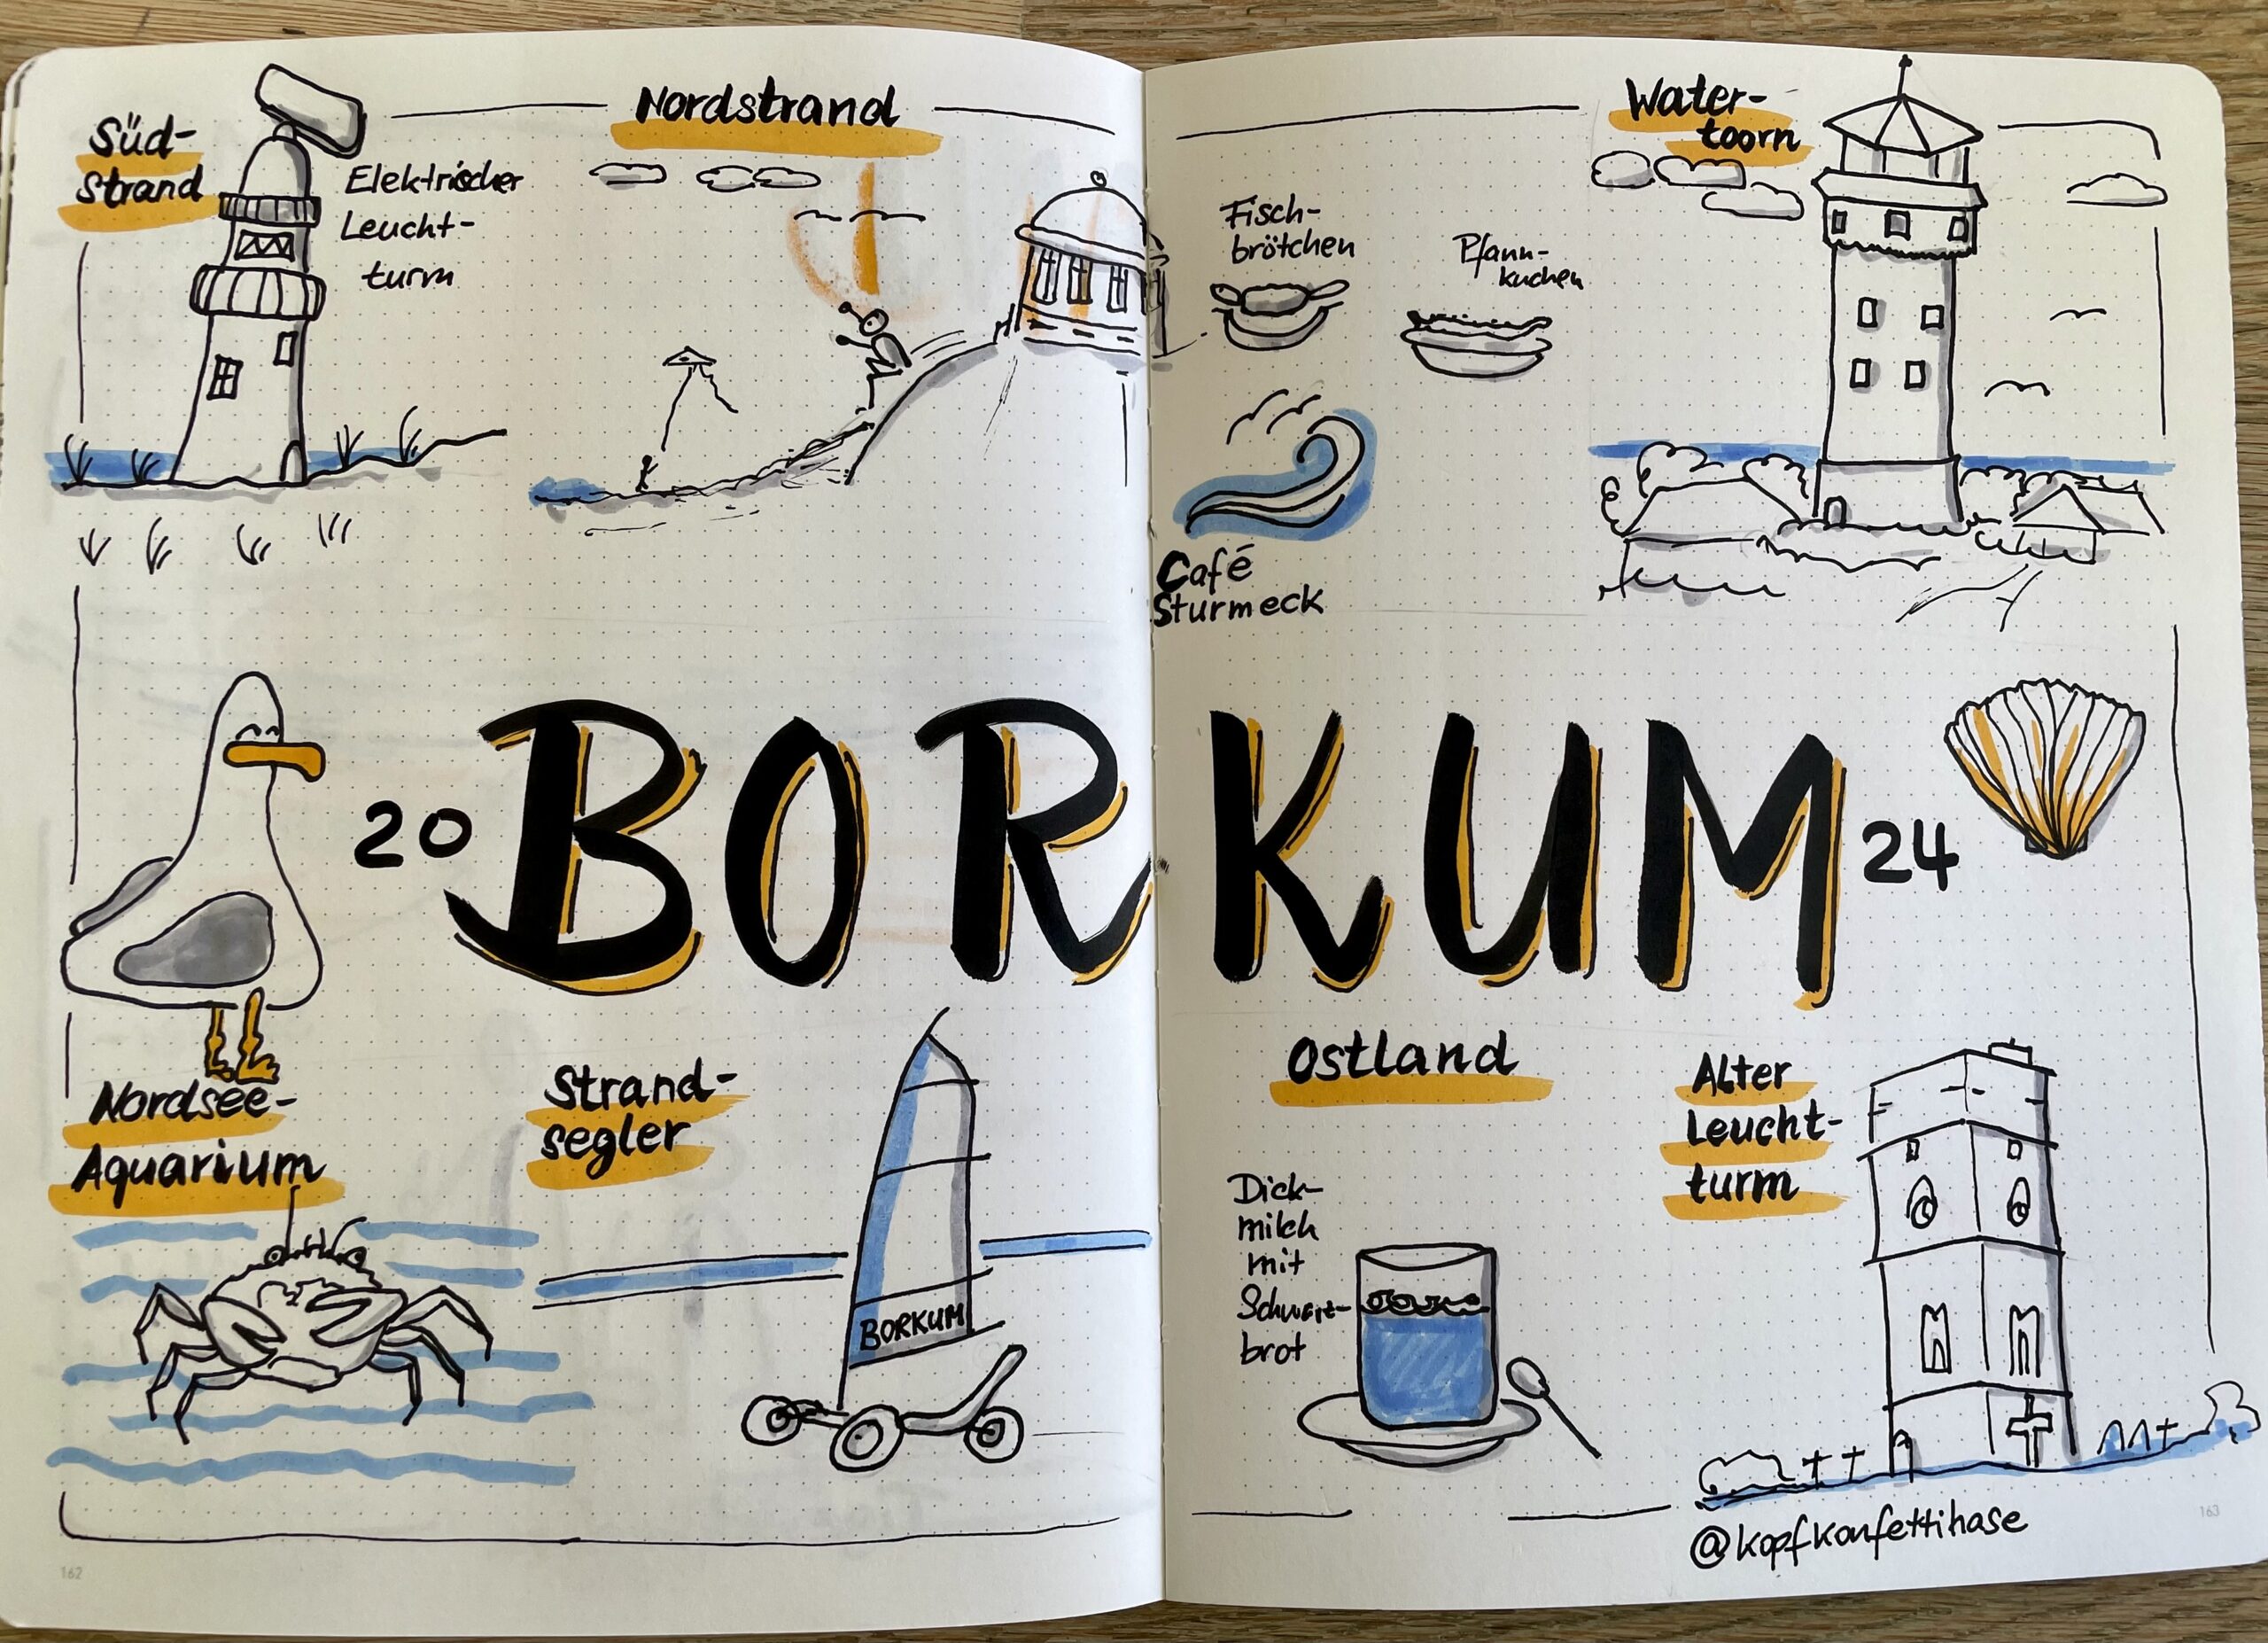 Süd-
strand
Elektrischer
Leucht-
turm
Nordstrand
Fisch-
brötchen
Pfann-
kuchen
Water-
toorn
Café
Sturmeck
20 BORKUM 24
Nordsee-
Aquarium
Strand-
segler
BORKUM
Ostland
Dick-
milch
mit
Schwarz-
brot
Alter
Leucht-
turm
@kopfkonfettihase
162
163